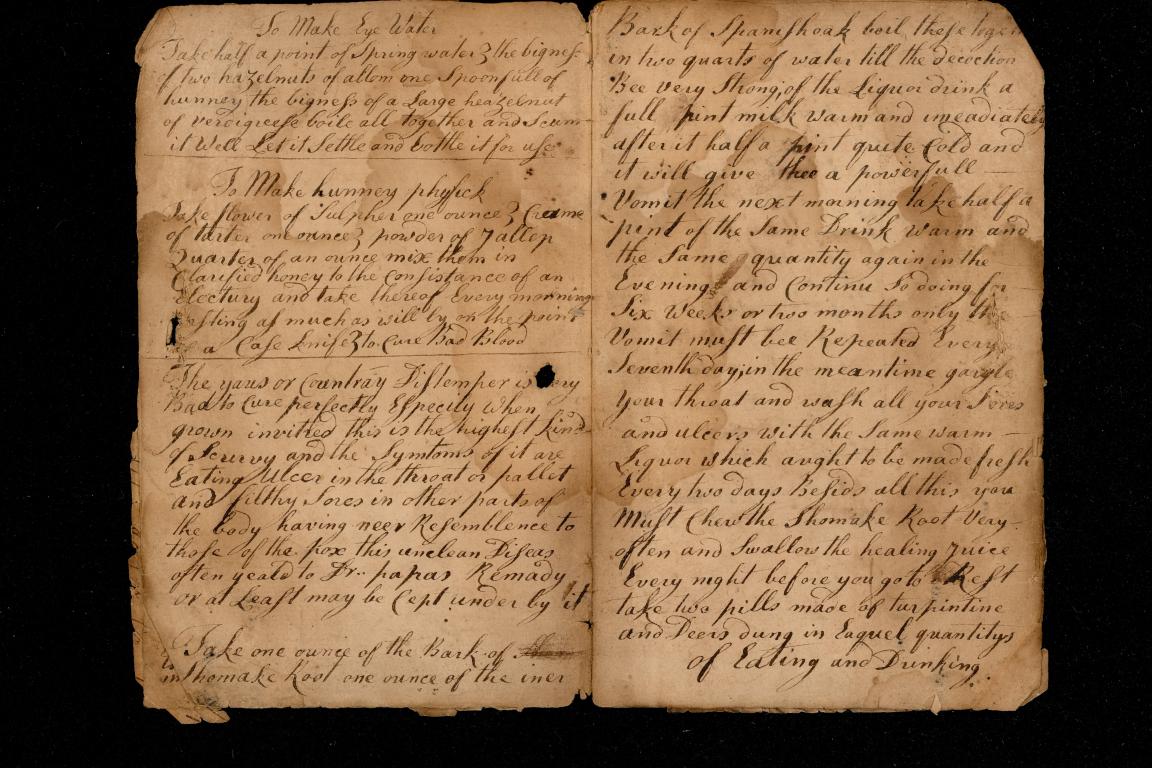 To Make Eye Water
Take half a point of Spring water & the bigness
of two hazelnuts of allom one Spoonfull of
hunney the bigness of a Large heazelnut
of verdigreese boile all together and Scum
it Well Let it Settle and bottle it for use
To Make hunney physick
Take flower of Sulpher one ounce & Creame
of tarter one ounce & powder of Jallep
Quarter of an ounce mix them in
Clarified honey to the Consistance of an
Electury and take thereof Every morning
fasting as much as will ly on the point
a Case knife & to Cure Bad Blood
The yaws or Countray Distemper is very
Bad to Cure perfectly Especily When
grown invitred this is the highest kind
of Scurvy and the Symtoms of it are
Eating Ulcer in the throat or pallet
and filthy Sores in other parts of
the body having neer Resemblence to
those of the pox this unclean Diseas
often yeald to Dr. papas Remady
or at Least may be Cept under by it
Take one ounce of the Bark of
Shomake Root one ounce of the iner
Bark of Spanish oak boil these together
in two quarts of water till the decoction
Bee very Strong, of the Liquor drink a
full pint milk warm and imeadiately
after it half a pint quite Cold and
it will give thee a powerfull
Vomit the next morning take half a
pint of the Same Drink warm and
the Same quantity again in the
Evening and Continu So doing for
Six Weeks or two months only the
Vomit must bee Repeated Every
Seventh day; in the meantime gargle
your throat and wash all your Sores
and ulcers with the Same warm
Liquor which aught to be made fresh
Every two days Besids all this you
Must Chew the Shomake Root Very
often and Swallow the healing Juice
Every night before you go to Rest
take two pills made of turpintine
and Deers dung in Eaquel quantitys
of Eating and Drinking